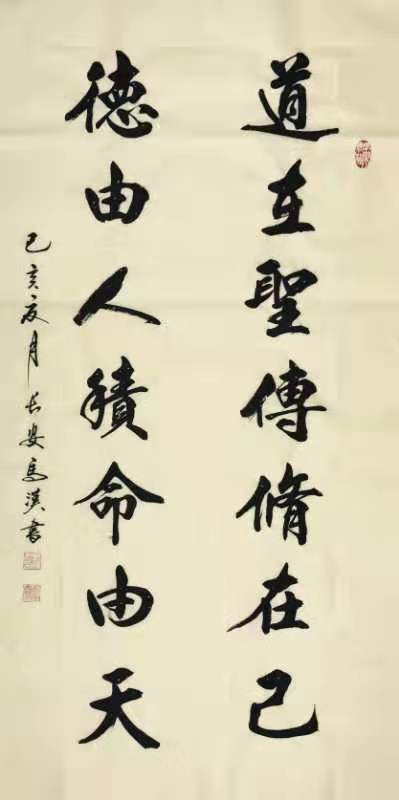 道在聖傳脩在己
德由人積命由天
己亥夏月長安馬漢書